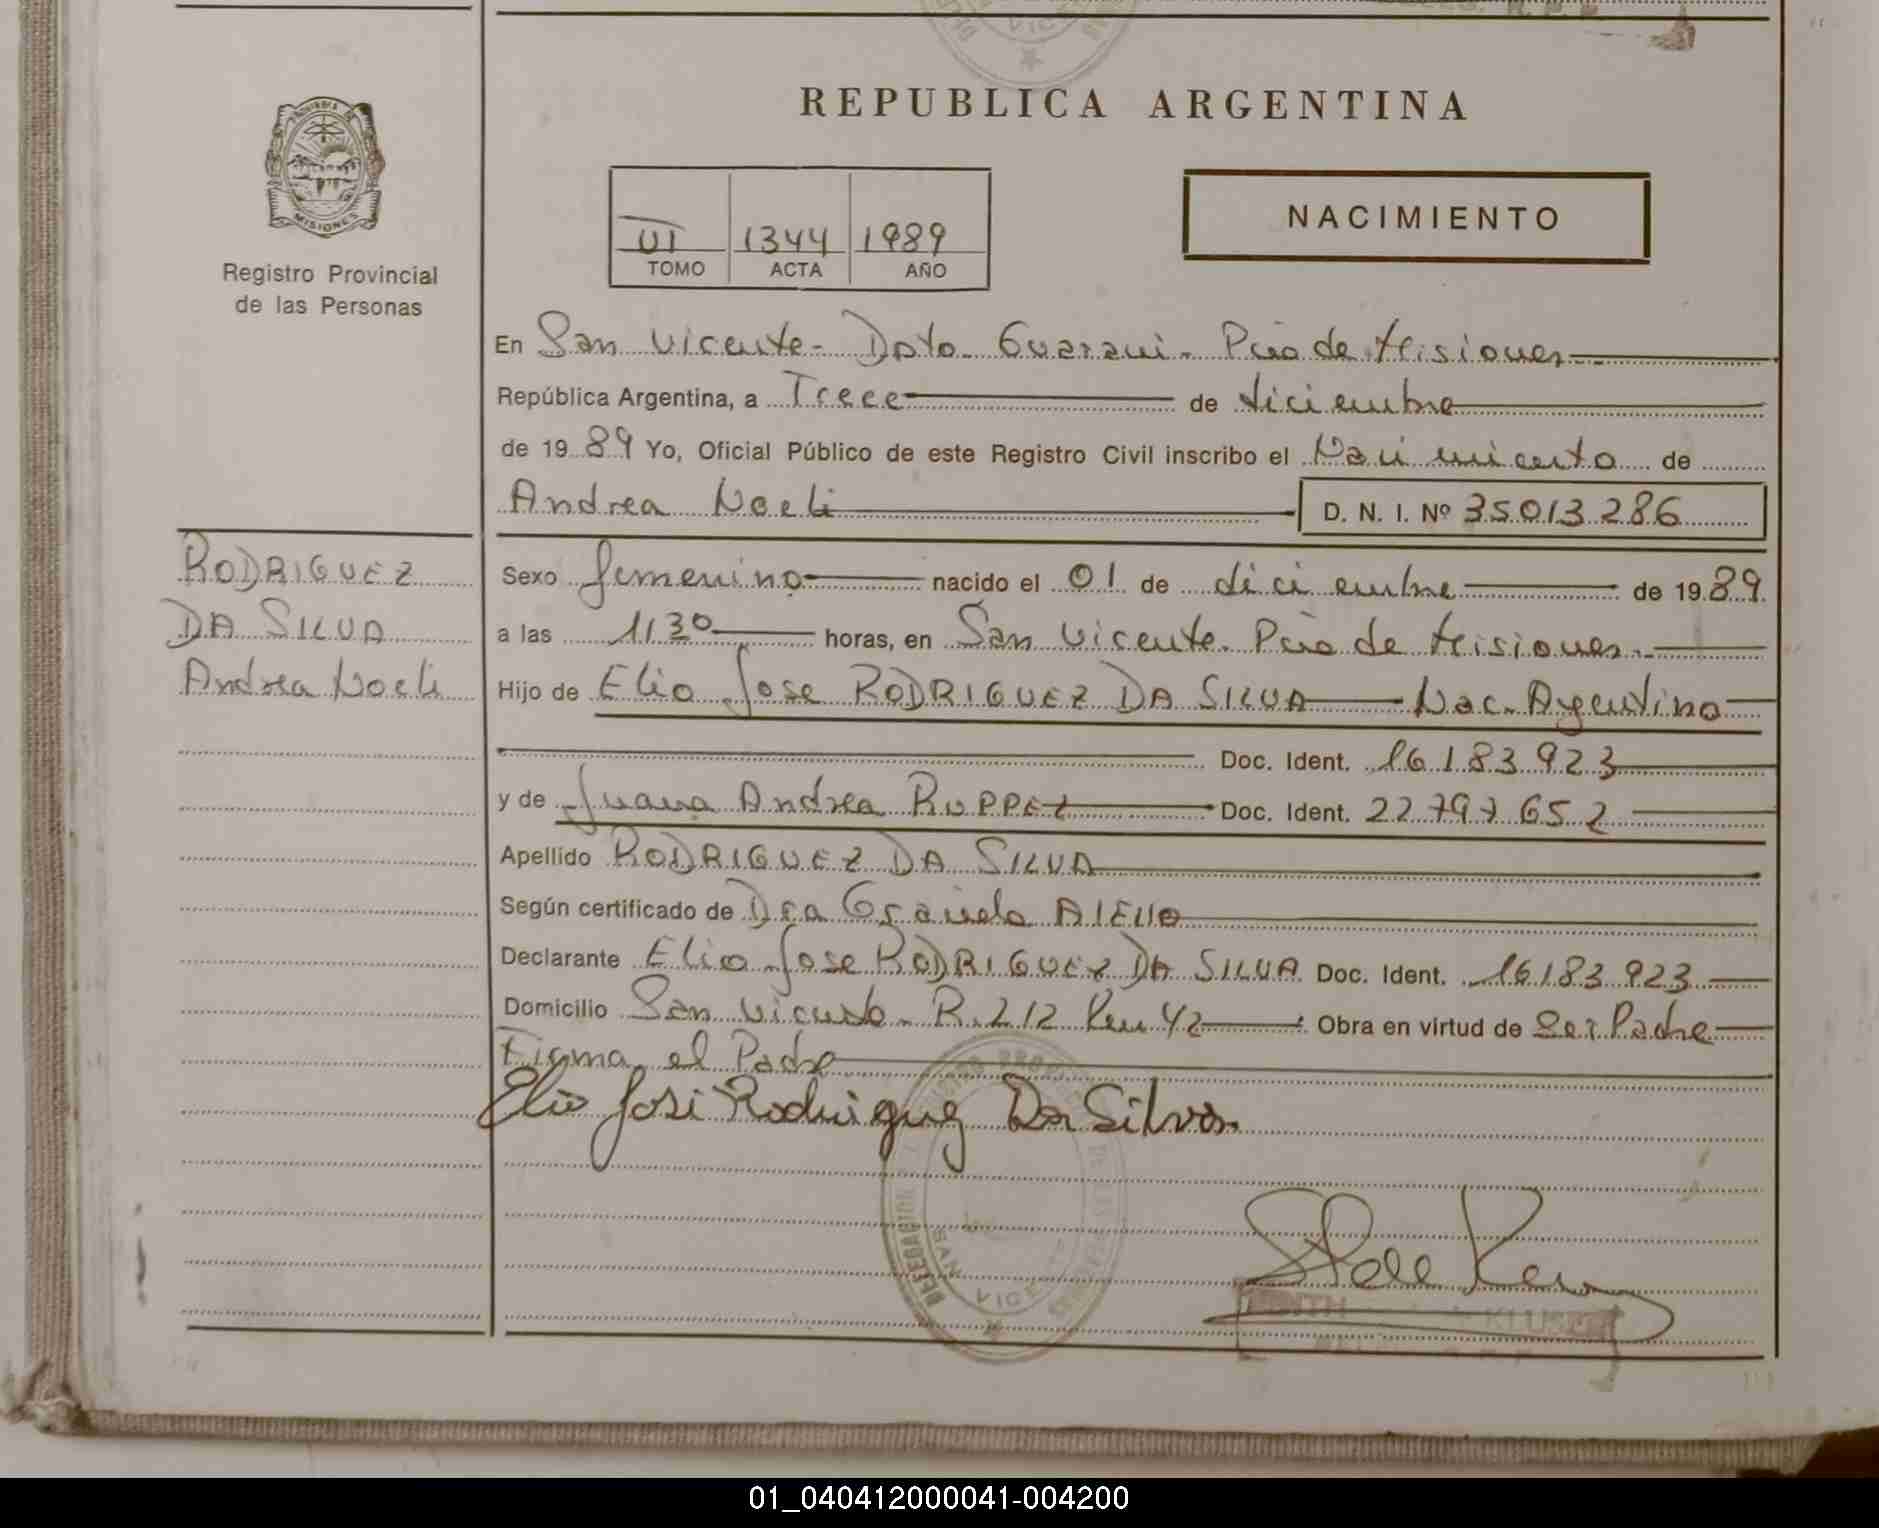 REPUBLICA ARGENTINA
PROVINCIA DE
MISIONES
Registro Provincial
de las Personas
VI 1344 1989
TOMO ACTA AÑO
NACIMIENTO
En San Vicente - Dpto. Guarani. Pcia de Misiones
República Argentina, a Trece de diciembre
de 1989 Yo, Oficial Público de este Registro Civil inscribo el Nacimiento de
Andrea Noeli D. N. I. Nº 35013286
RODRIGUEZ
DA SILVA
Andrea Noeli
Sexo femenino nacido el 01 de diciembre de 1989
a las 1130 horas, en San Vicente. Pcia de Misiones.
Hijo de Elio Jose RODRIGUEZ DA SILVA Nac. Argentino
Doc. Ident. 16183923
y de Juana Andrea Doc. Ident. 22797652
Apellido RODRIGUEZ DA SILVA
Según certificado de Dra Graciela AIELLO
Declarante Elio Jose RODRIGUEZ DA SILVA Doc. Ident. 16183923
Domicilio San Vicente - R. 212 Km 42 Obra en virtud de Ser Padre
Firma el Padre
Elio José Rodriguez Da Silva
DELEGACION
SAN VICENTE
01_040412000041-004200